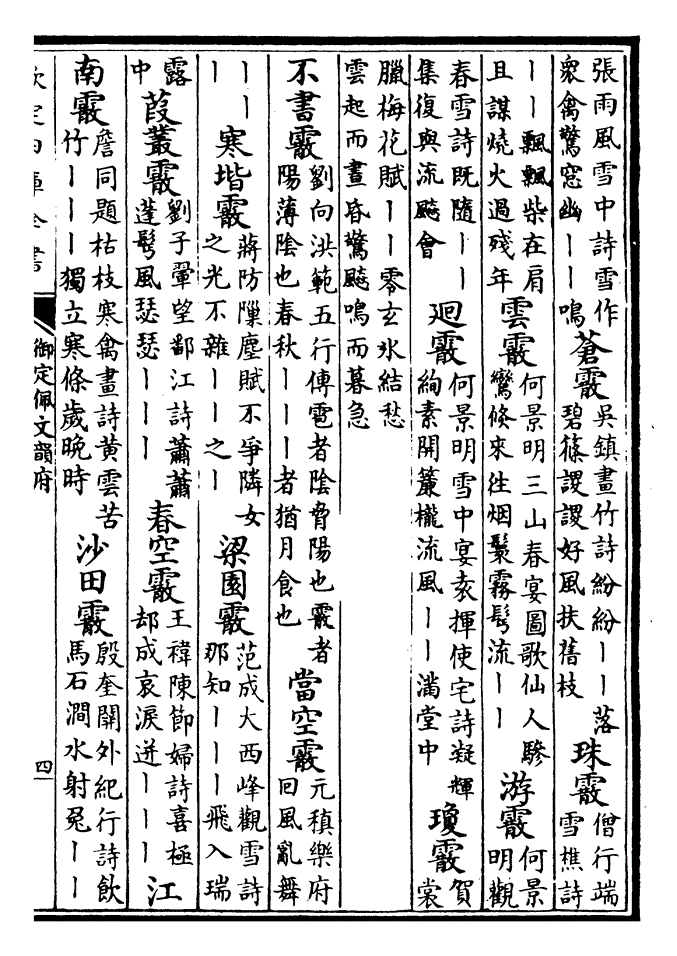 張雨風雪中詩雪作衆禽驚窓幽丨丨鳴蒼霰吳鎮畫竹詩紛紛丨丨落碧篠謖謖好風扶舊枝珠霰僧行端雪樵詩
丨丨飄飄柴在肩且謀燒火過殘年雲霰何景明三山春宴圖歌仙人驂鸞倐來往烟鬟霧髩流丨丨游霰何景明觀
春雪詩既隨丨丨集復與流飈會迴霰何景明雪中宴袁揮使宅詩凝輝絢素開簾櫳流風丨丨滿堂中瓊霰賀裳
臘梅花賦丨丨零玄氷結愁雲起而晝昏驚飈鳴而暮急
不書霰劉向洪範五行傳雹者陰脅陽也霰者陽薄陰也春秋丨丨丨者猶月食也當空霰元稹樂府回風亂舞
丨丨丨寒堦霰蔣防隟塵賦不爭隣女之光不雜丨丨之丨梁園霰范成大西峰觀雪詩那知丨丨丨飛入瑞
露中葭叢霰劉子翬望鄱江詩蕭蕭蓬髩風瑟瑟丨丨丨春空霰王禕陳節婦詩喜極却成哀淚迸丨丨丨江
南霰詹同題枯枝寒禽畫詩黄雲苦竹丨丨丨獨立寒條歲晩時沙田霰殷奎關外紀行詩飲馬石澗水射兔丨丨
欽定四庫全書
御定佩文韻府
四